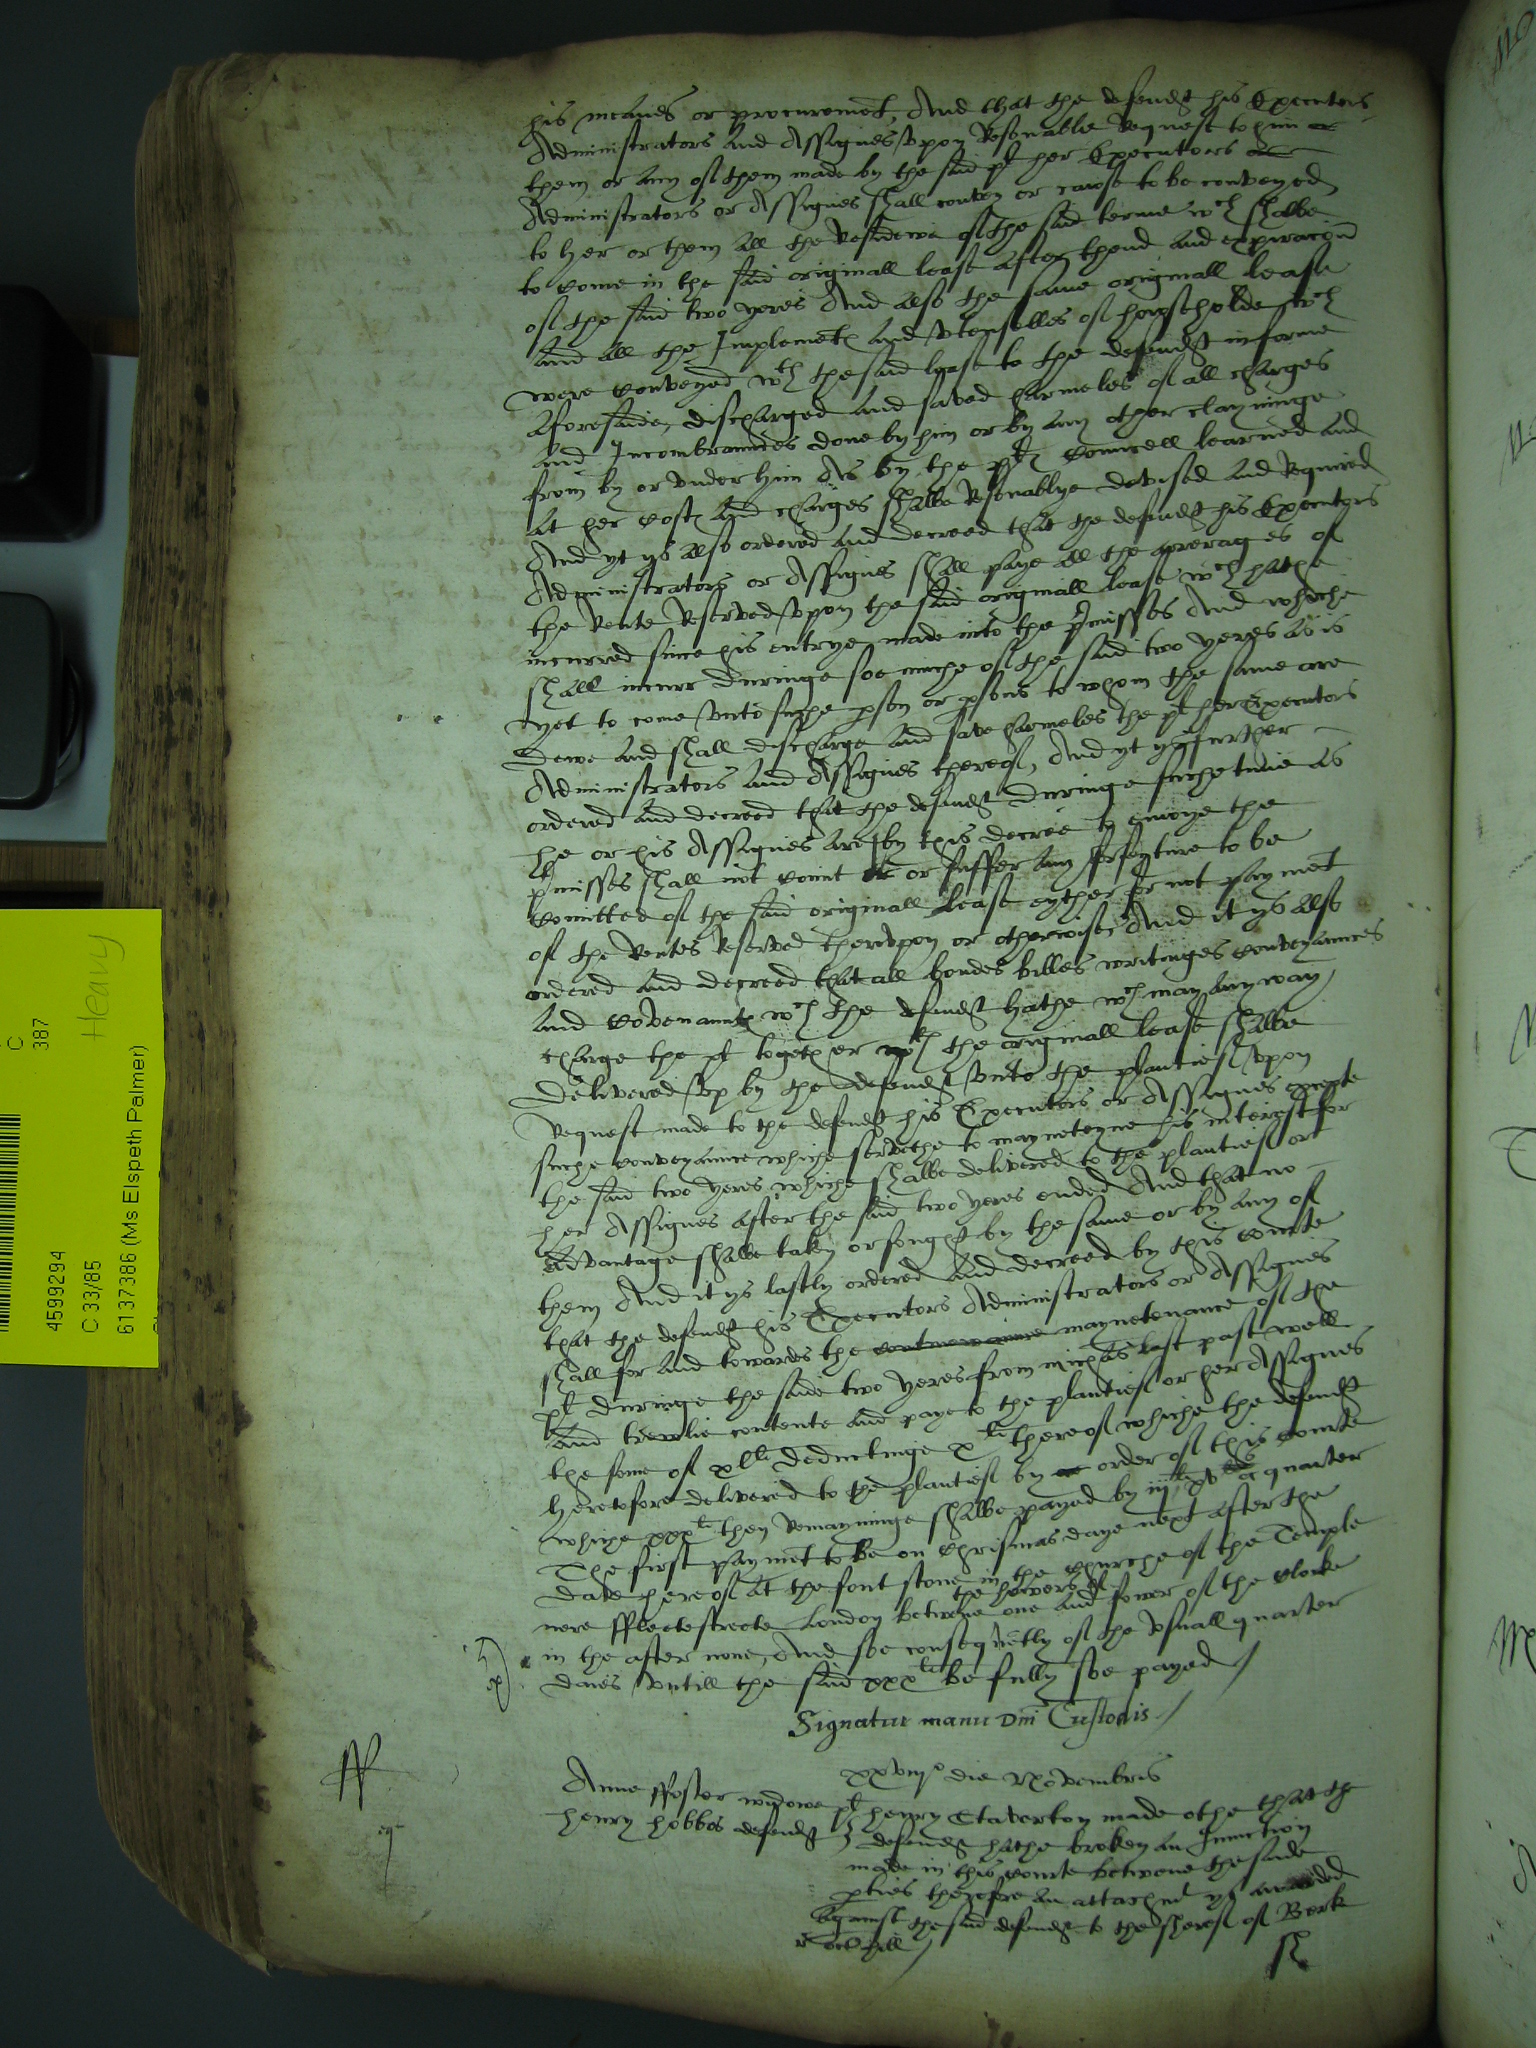 his meanes or procurement, And that the defendt his Executors
Administrators and Assignes vpon Resonable Request to him or
them or any of them made by the said pl her Executors or
Administrators or Assignes shall convey or cawse to be conveyed
to her or them all the Residewe of the said terme wch shalbe
to come in the said originall lease after thend and expiracon
of the said two yeres And also the same originall lease
and all the Implemts and vtensilles of howsholde wch
were conveyed wth the said lease to the defendt in forme
aforesaide, discharged and saved harmeles of all charges
and Incombraunces done by him or by any other clayminge
from by or vnder him As by the pltes Councell learned and
at her costs and charges shalbe Resonablye devised and Required
And yt ys also ordered and decreed that the defendt his Executors
Administrators or Assignes shall paye all the arrerages of
the Rente Reserved vpon the said originall lease wch hathe
incurred since his entrye made into the pmisses And whiche
shall incurr duringe soe muche of the said two yeres as is
yet to come vnto suche pson or psons to whom the same are
dewe and shall discharge and save harmeles the pl her Executors
Administrators and Assignes thereof, And yt ys further
ordered and decreed that the defendt duringe suche time as
he or his Assignes are by this decree to enioye the
pmisses shall not comit or suffer any forfeyture to be
comitted of the said originall lease eyther for not paymet
of the Rentes Reserved therevpon or otherwise And it ys also
ordered and decreed that all bondes billes writinges conveyaunces
and Covenaunts wch the defendt hathe wch may any way
charge the pl together wth the originall lease shalbe
delivered vp by the defendt vnto the plantief vpon
Request made to the defendt his Executors or Assignes excepte
suche conveyaunce whiche servethe to mayneteyne his interest for
the said two yeres whiche shalbe delivered to the plantief or
her Assignes after the said two yeres ended And that no
advantage shalbe taken or sought by the same or by any of
them And it ys lastly ordered and decreed by this Courte
that the defendt his Executors Administrators or Assignes
shall for and towardes the maynetenance of the
pl duringe the saide two yeres from michas last past well
and trewlie contente and paye to the plantief or her Assignes
the some of xlli deductinge xli thereof whiche the defendt
heretofore delivered to the plantief by order of this Courte
whiche xxxli then Remayninge shalbe payed by iijli xvs a quarter
The first paymet to be on Christmas daye next after the
date hereof at the font stone in the Churche of the Temple
nere ffleetestreete London betwene the howers of one and fower of the Clocke
in the after none, And soe consequetly of the vsuall quarter
daies vntill the said xxxli be fully soe payed
Signatur manu Dni Custodis
xxviijo die Novembris
Anne ffoster widowe pl
henry hobbes defendt
henry Claverton made othe that the
defendt hathe broken an Iniunction
made in this Courte betwene the saide
pties therefore an attachmt ys awarded
against the said defendt to the sheref of Berk